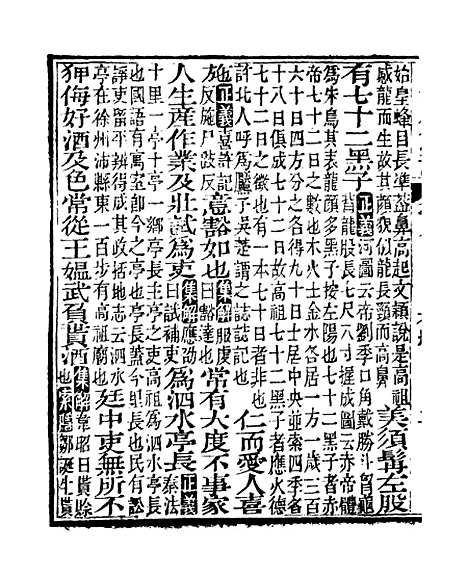 始皇蜂目長準蓋鼻高起文穎說是高祖感龍而生故其顏貌似龍長頸而高鼻美須髯左股
有七十二黑子正義河圖云帝劉季口角戴勝斗胷龜背龍股長七尺八寸握成圖云赤帝體
爲朱鳥其表龍顏多黑子按左陽也七十二黑子者赤帝七十二日之數也木火土金水各居一方一歲三百
六十日四方分之各得九十日土居中央並索四季各十八日俱成七十二日故高祖七十二黑子者應火德
七十二日之徵也有一本七十日者非也許北人呼爲黶子吳楚謂之誌誌記也仁而愛人喜
施正義喜許記反施尸豉反意豁如也集解服虔曰豁達也常有大度不事家
人生産作業及壯試爲吏集解應劭曰試補吏爲泗水亭長正義秦法
十里一亭十亭一鄉亭長主亭之吏高祖爲泗水亭長也國語有寓室卽今之亭也亭長蓋今里長也民有訟
諍吏畱平辨得成其政括地志云泗水亭在徐州沛縣東一百步有高祖廟也廷中吏無所不
狎侮好酒及色常從王媼武負貰酒集解韋昭曰貰賒也索隱鄒誕生貰